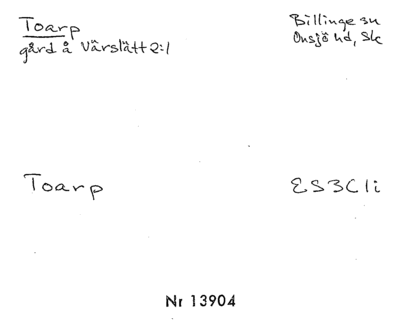 Toarp
gård å Värslätt 2:1
Billinge sn
Onsjö hd, Sk
Toarp
ES3C1i
Nr 13904